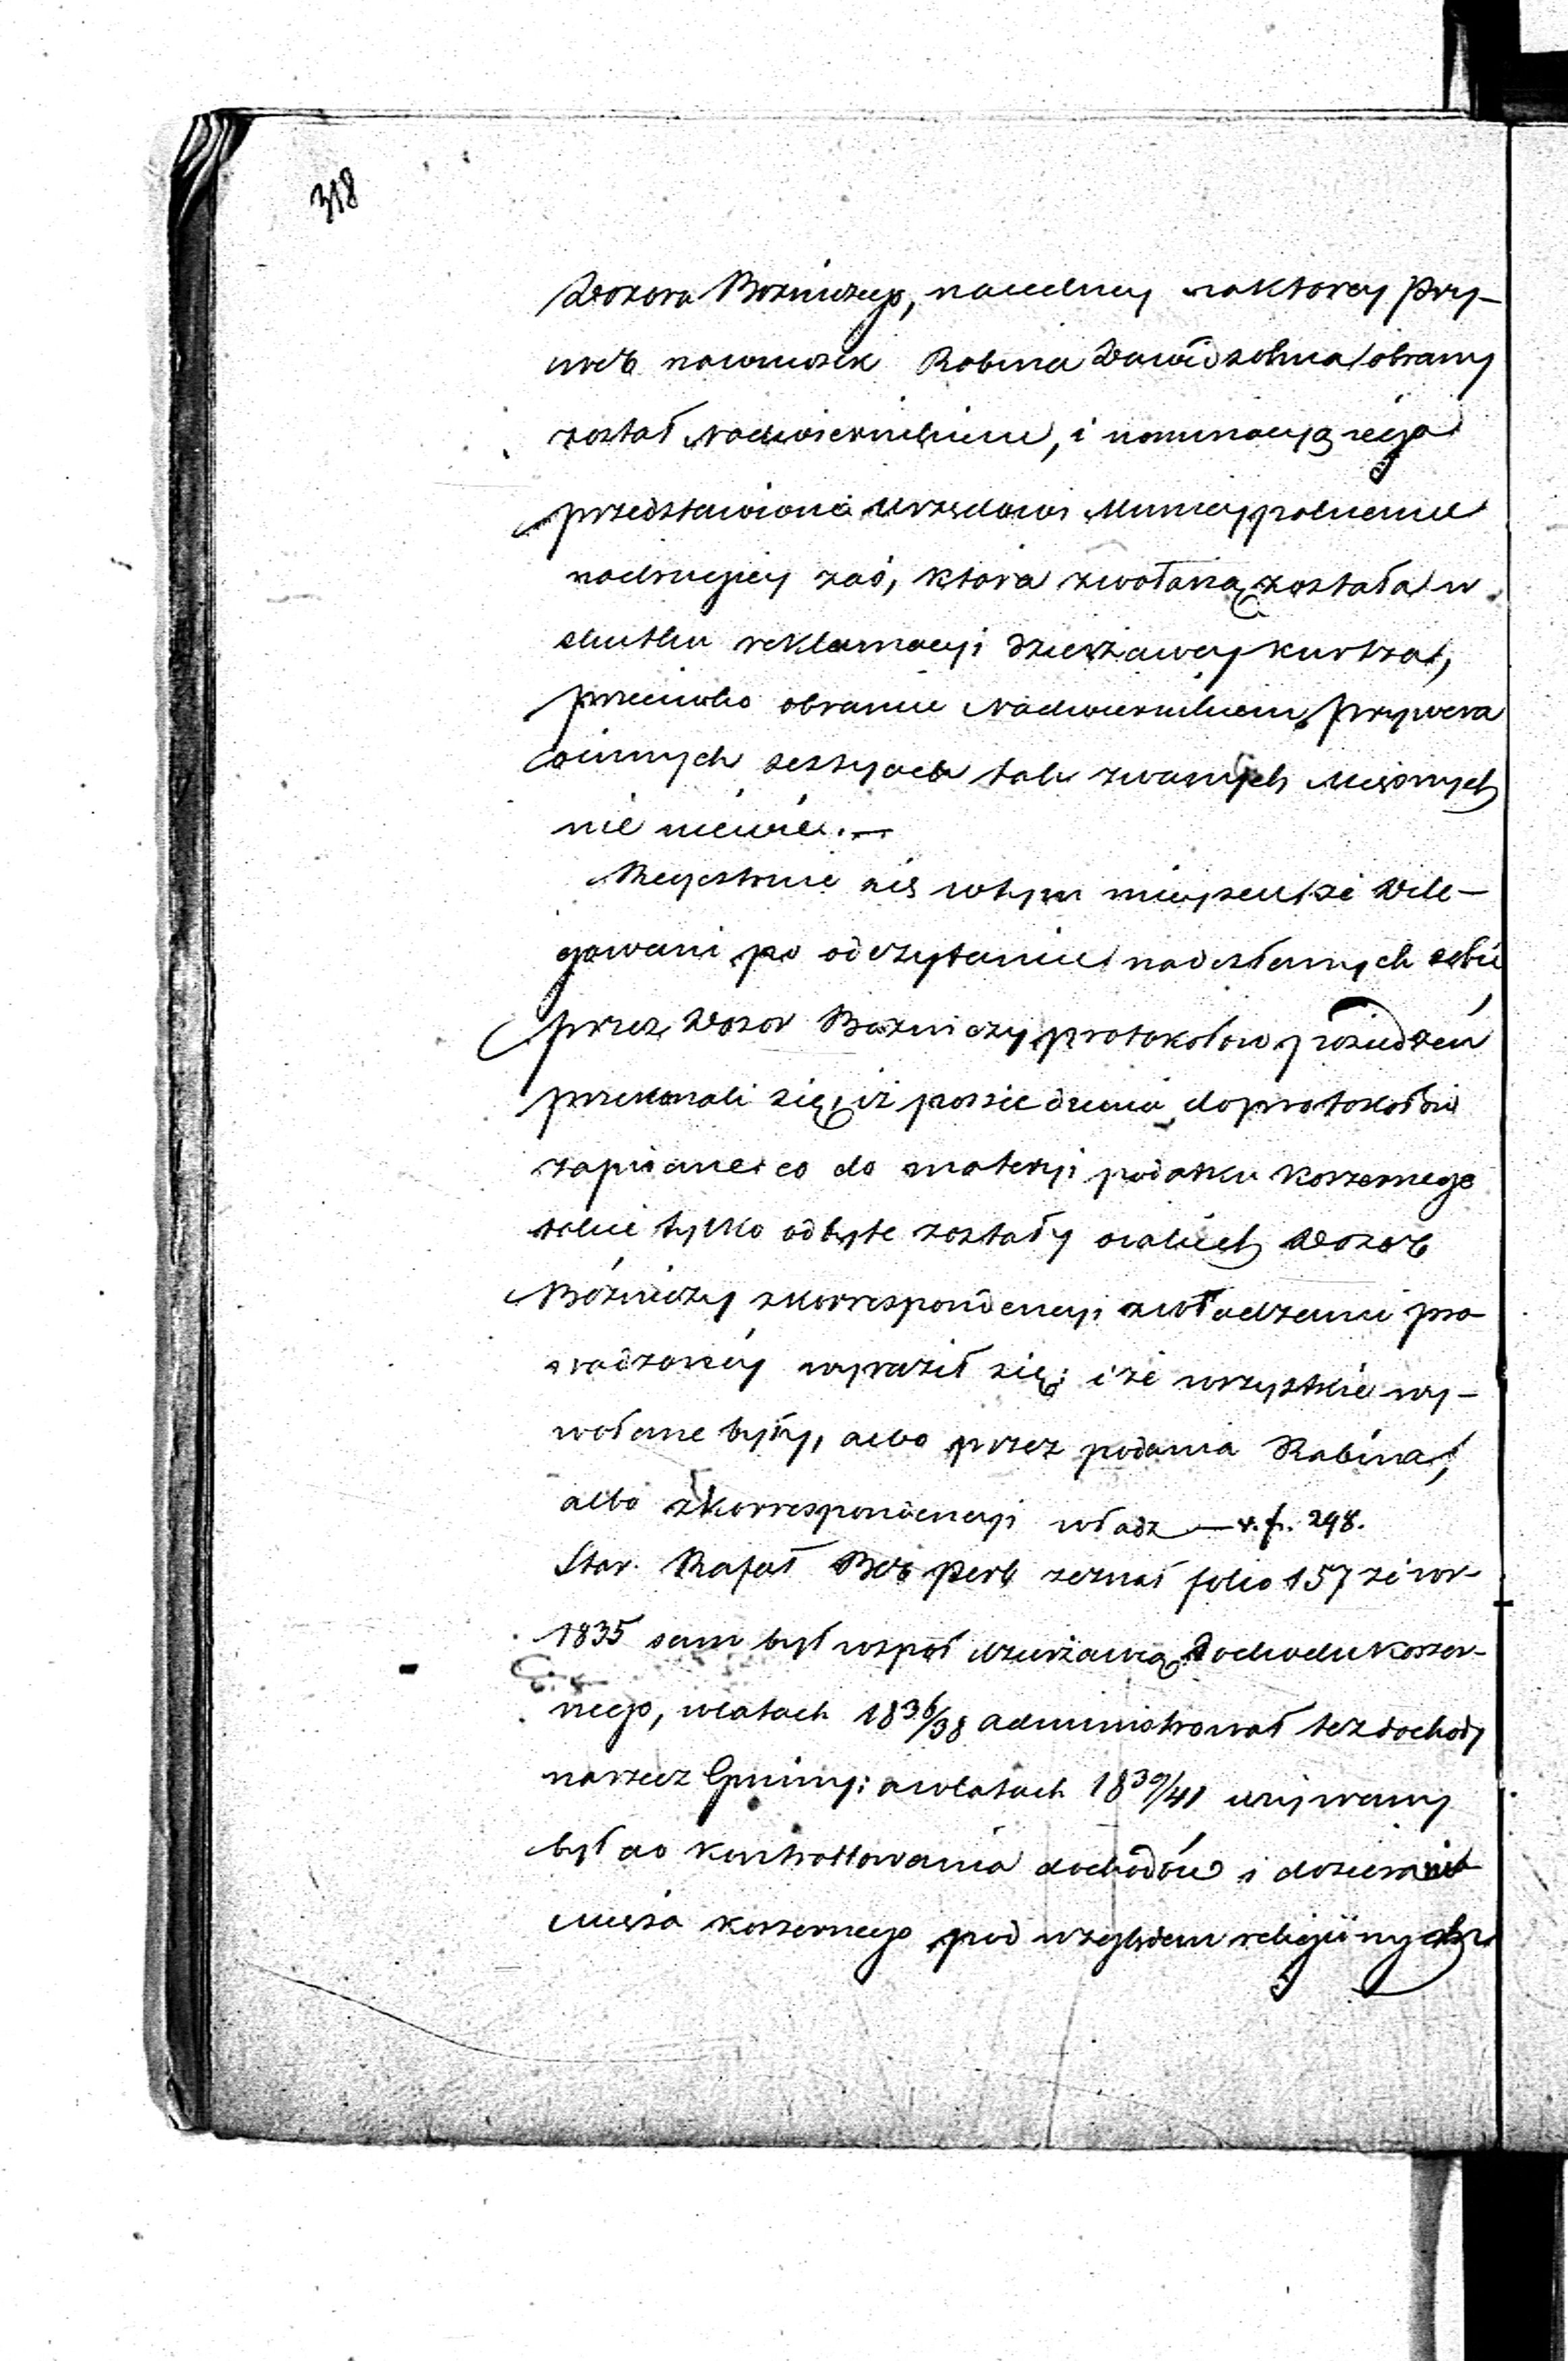 318
Dozoru Bożniczego, na jedney na ktorey Pry-
wer na wniosek Rabina Dawidsohna obrany
został Nadwiernikiem, i nominacya jego
przedstawiona Urzędowi Municypalnemu
na drugiey zaś, ktora zwołaną została w
skutku reklamacyi Dzierżawcy Kurtza,
przeciwko obraniu Nadwiernikiem Prywera
o innych sessyach tak zwanych Mięsnych
nie niewie. —
Regestruie się w tym mieyscu że Dele-
gowani po odczytaniu nadesłanych sobie
przez Dozor Bożniczy protokołow posiedzeń
przekonali się, iż posiedzenia do protokołów
zapisane co do materyi podatku koszernego
takie tylko odbyte zostały o jakich Dozor
Bóżniczy z korrespondencyi z władzami pro
wadzoney wyraził się; i że wszystkie wy-
wołane były, albo przez podania Rabina,
albo z korrespondencyi władz — v. f. 298.
Star. Rafał Ber Perl zeznał folio 157 że w r
1835 sam był współ dzierżawcą Dochodu koszer-
nego, w latach 1836/38 administrował też dochody
na rzecz Gminy; a w latach 1839/41 używany
był do kontrollowania dochodów i dozierania
Mięsa koszernego pod względem religijnych